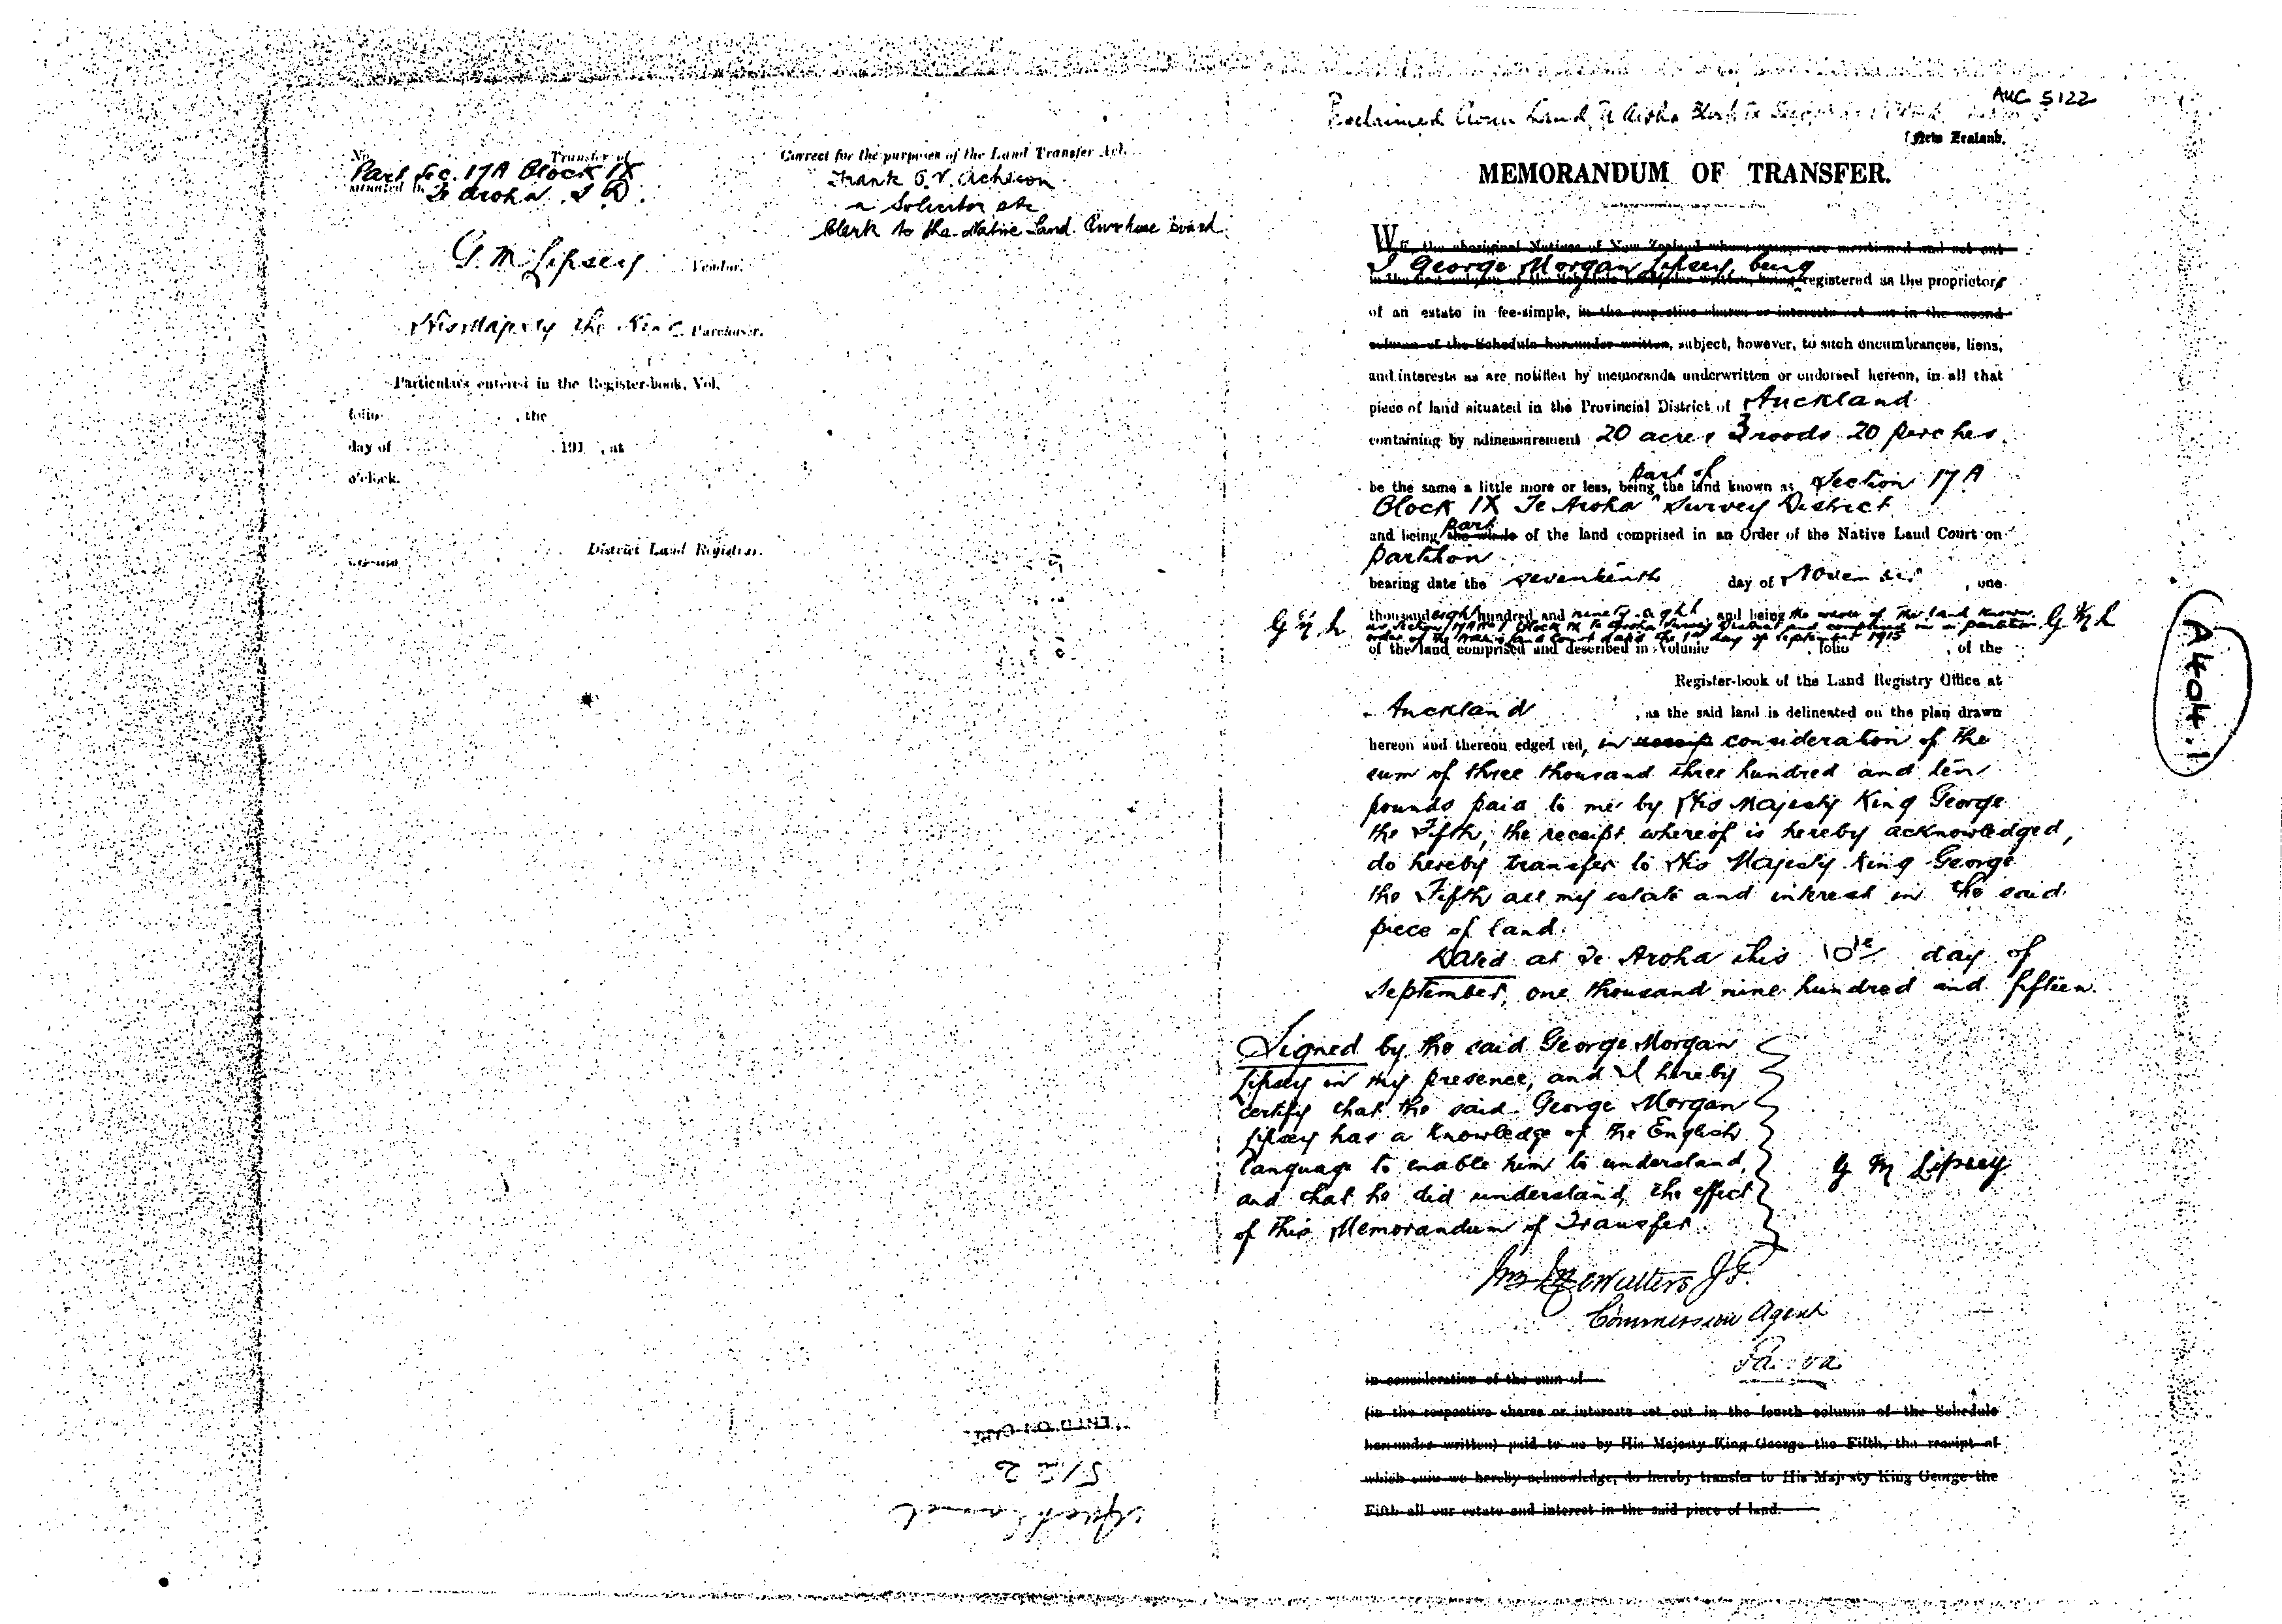 No. Transfer of
Part Sec. 17A Block IX
situated in Te Aroha S.D.
G. M. Lipsey Vendor.
His Majesty the King Purchaser.
Particulars entered in the Register-book, Vol.
folio , the
day of 191 , at
o'clock.
District Land Registrar.
Correct for the purposes of the Land Transfer Act.
Frank O. V. Acheson
a Solicitor etc
Clerk to the Native Land Purchase Board
5122
AUC 5122
Proclaimed Crown Land, Te Aroha Block IX
[New Zealand.
MEMORANDUM OF TRANSFER.
WE, the aboriginal Natives of New Zealand whose names are mentioned and set out
I George Morgan Lipsey, being
in the first column of the Schedule hereunder written, being registered as the proprietors
of an estate in fee-simple, in the respective shares or interests set out in the second
column of the Schedule hereunder written, subject, however, to such encumbrances, liens,
and interests as are notified by memoranda underwritten or endorsed hereon, in all that
piece of land situated in the Provincial District of Auckland
containing by admeasurement 20 acres 3 roods 20 perches
part of
be the same a little more or less, being the land known as Section 17A
Block IX Te Aroha Survey District
part
and being the whole of the land comprised in an Order of the Native Land Court on
partition
bearing date the seventeenth day of November , one
G M L thousand eight hundred and ninety-eight and being the whole of the land known
as Section 17A No 1 Block IX Te Aroha Survey District and comprised in a partition G M L
order of the Native Land Court dated the 1st day of September 1915
of the land comprised and described in Volume , folio , of the
Register-book of the Land Registry Office at
Auckland , as the said land is delineated on the plan drawn
hereon and thereon edged red, in consideration of the
sum of three thousand three hundred and ten
pounds paid to me by His Majesty King George
the Fifth, the receipt whereof is hereby acknowledged,
do hereby transfer to His Majesty King George
the Fifth all my estate and interest in the said
piece of land.
Dated at Te Aroha this 10th day of
September, one thousand nine hundred and fifteen.
Signed by the said George Morgan
Lipsey in my presence, and I hereby
certify that the said George Morgan
Lipsey has a knowledge of the English
language to enable him to understand,
and that he did understand, the effect
of this Memorandum of Transfer.
G M Lipsey
Walters J.P.
Commission Agent
in consideration of the sum of
(in the respective shares or interests set out in the fourth column of the Schedule
hereunder written) paid to us by His Majesty King George the Fifth, the receipt of
which sum we hereby acknowledge, do hereby transfer to His Majesty King George the
Fifth all our estate and interest in the said piece of land.
A404.1